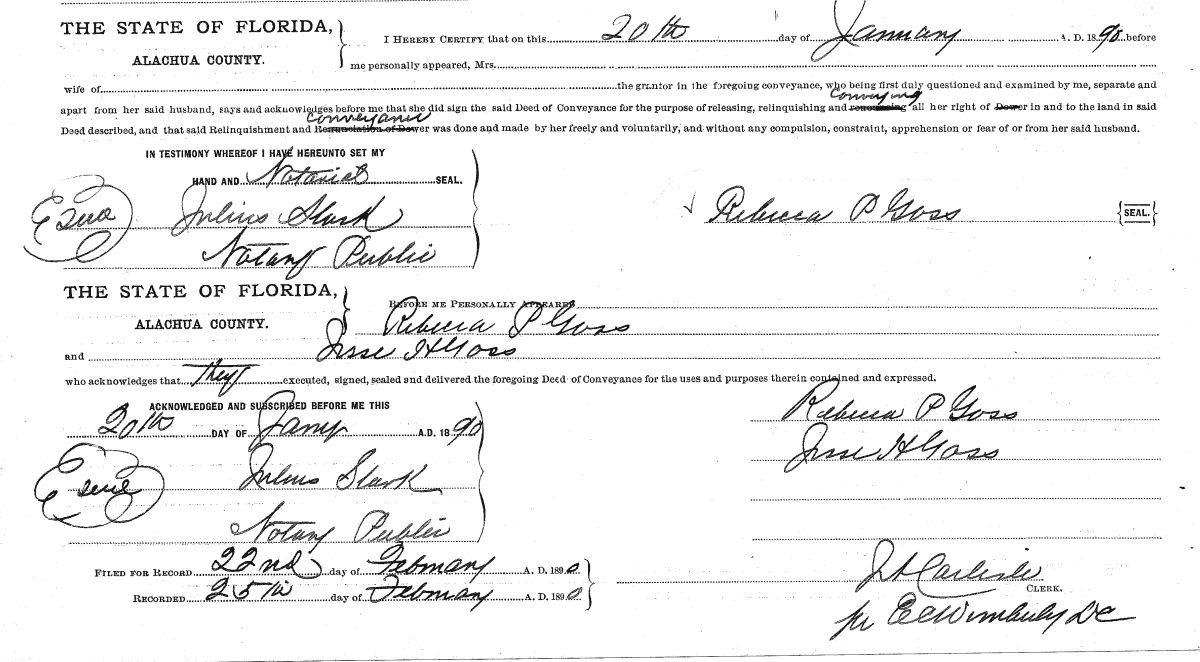 THE STATE OF FLORIDA,
ALACHUA COUNTY.
I HEREBY CERTIFY that on this 20th day of January A. D. 1890 before
me personally appeared, Mrs.
wife of the grantor in the foregoing conveyance, who being first duly questioned and examined by me, separate and
conveying
apart from her said husband, says and acknowledges before me that she did sign the said Deed of Conveyance for the purpose of releasing, relinquishing and renouncing all her right of Dower in and to the land in said
Conveyance
Deed described, and that said Relinquishment and Renunciation of Dower was done and made by her freely and voluntarily, and without any compulsion, constraint, apprehension or fear of or from her said husband.
IN TESTIMONY WHEREOF I HAVE HEREUNTO SET MY
HAND AND Notarial SEAL.
Julius Slark
Rebecca P Goss {SEAL.}
Notary Public
THE STATE OF FLORIDA,
ALACHUA COUNTY.
BEFORE ME PERSONALLY APPEARED
Rebecca P Goss
and Jesse H Goss
who acknowledges that they executed, signed, sealed and delivered the foregoing Deed of Conveyance for the uses and purposes therein contained and expressed.
ACKNOWLEDGED AND SUBSCRIBED BEFORE ME THIS
20th DAY OF Jany A.D. 1890
Rebecca P Goss
Jesse H Goss
Julius Slark
Notary Public
FILED FOR RECORD 22nd day of February A. D. 1890
RECORDED 25th day of February A. D. 1890
J A Carlisle
CLERK.
pr E C Wimberly DC